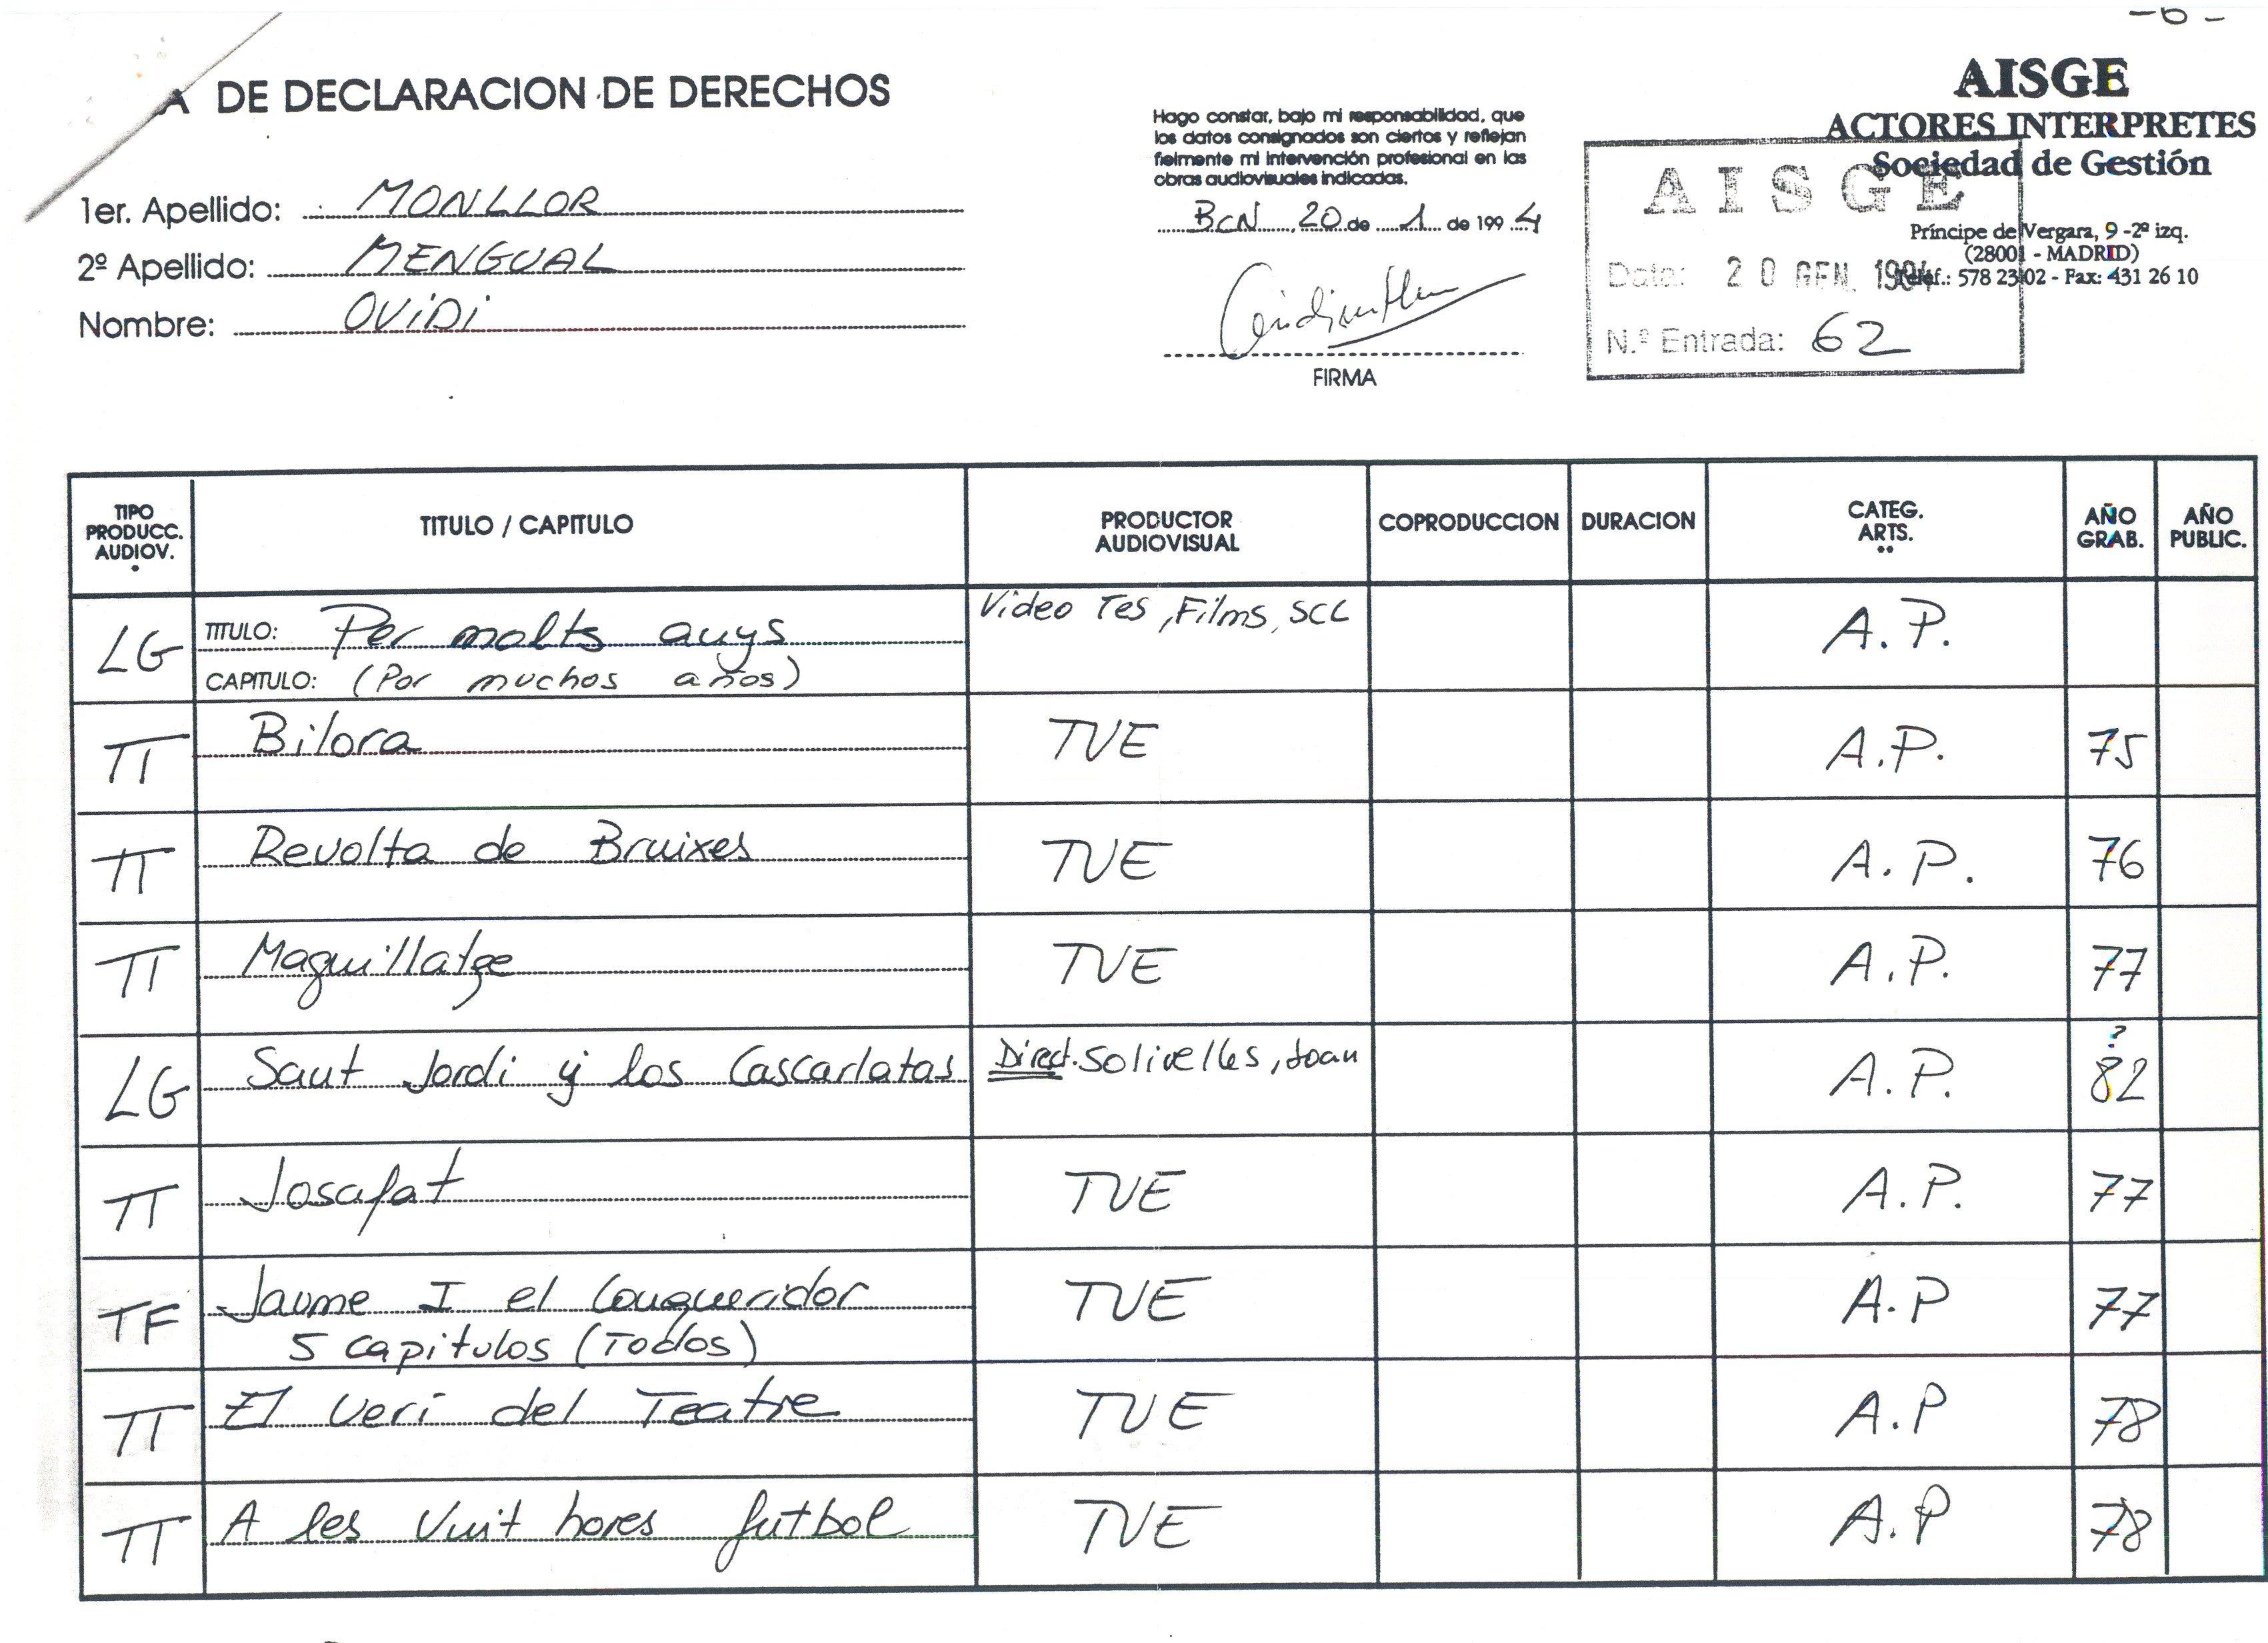 - 6 -
A DE DECLARACION DE DERECHOS
1er. Apellido: MONLLOR
2º Apellido: MENGUAL
Nombre: OViDi
Hago constar, bajo mi responsabilidad, que
los datos consignados son ciertos y reflejan
fielmente mi intervención profesional en las
obras audiovisuales indicadas.
BCN, 20 de 1 de 1994
FIRMA
AISGE
ACTORES INTERPRETES
Sociedad de Gestión
Príncipe de Vergara, 9 -2º izq.
(28001 - MADRID)
Teléf.: 578 23 02 - Fax: 431 26 10
AISGE
Data: 20 GEN. 1994
N.º Entrada: 62
TIPO PRODUCC. AUDIOV. • TITULO / CAPITULO PRODUCTOR AUDIOVISUAL COPRODUCCION DURACION CATEG. ARTS. •• AÑO GRAB. AÑO PUBLIC.
LG TITULO: Per molts anys Video Tes, Films, SCL A.P.
CAPITULO: (Por muchos años)
TT Bilora TVE A.P. 75
TT Revolta de Bruixes TVE A.P. 76
TT Maquillatge TVE A.P. 77
LG Sant Jordi y los Cascarlatas Direct. Solivelles, Joan A.P. ? 82
TT Josafat TVE A.P. 77
TF Jaume I el Conqueridor TVE A.P 77
5 capitulos (Todos)
TT El veri del Teatre TVE A.P 78
TT A les Vuit hores futbol TVE A.P 78